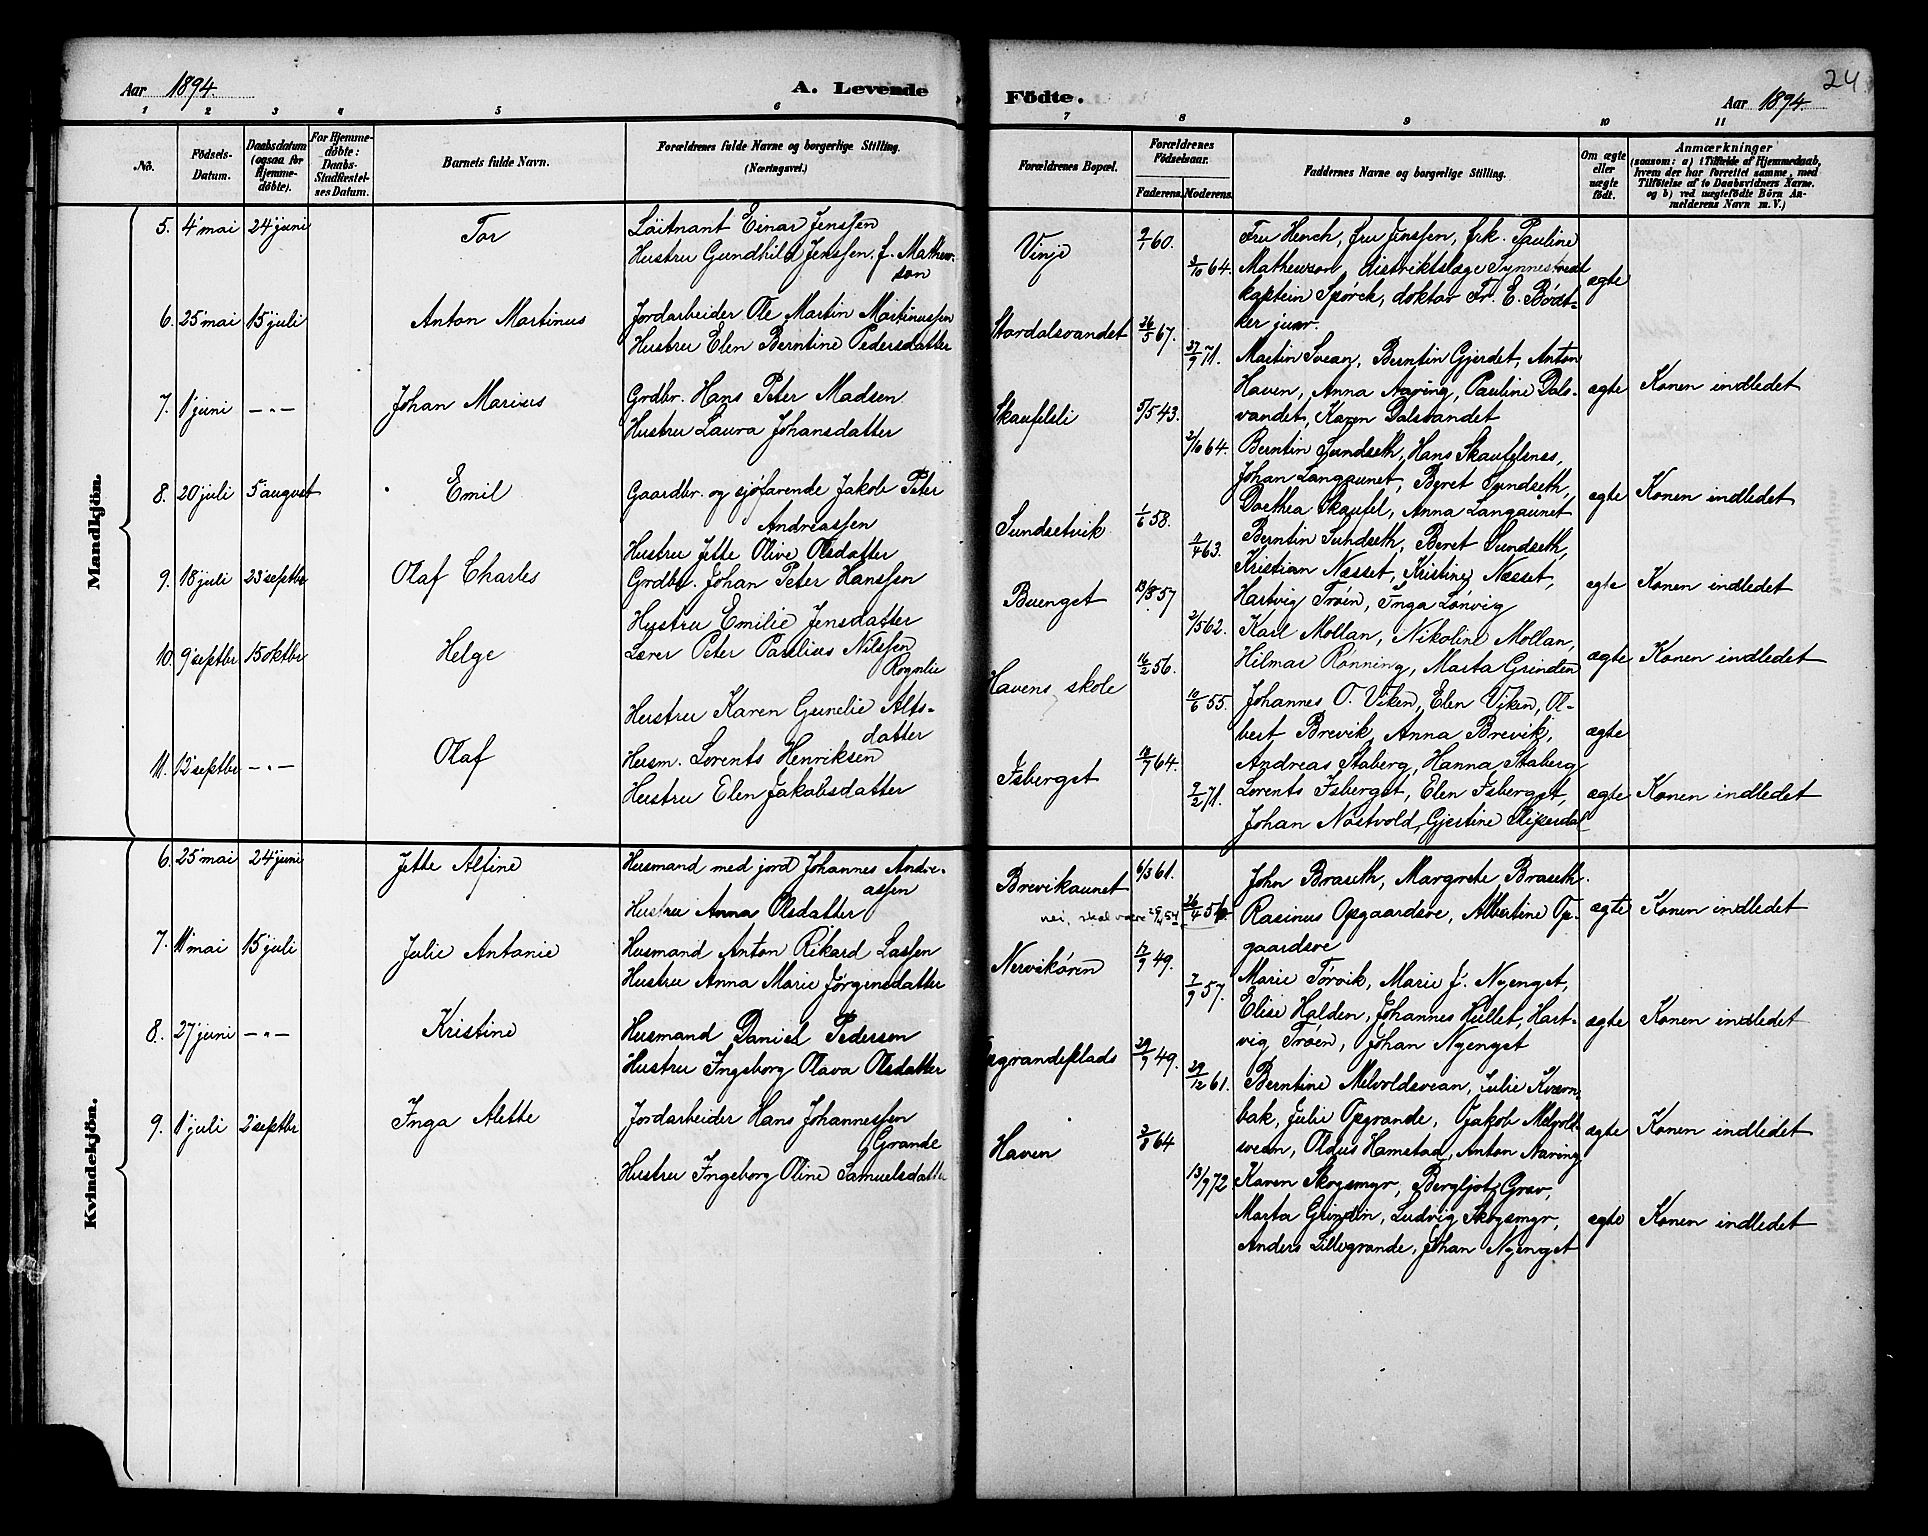 24
Aar 1894.
A. Levende
Födte.
Aar 1894.
1 2 3 4 5 6 7 8 9 10 11
No.
Födsels-Datum.
Daabsdatum (ogsaa for Hjemme-døbte).
For Hjemme-döbte: Daabs-Stadfæstel-ses Datum.
Barnets fulde Navn.
Forældrenes fulde Navne og borgerlige Stilling. (Næringsvei.)
Forældrenes Bopæl.
Forældrenes Födselsaar.
Faderens. Moderens.
Faddernes Navne og borgerlige Stilling.
Om ægte eller uægte födt.
Anmærkninger
(saasom: a) i Tilfælde af Hjemmedaab,
hvem der har forrettet samme, med
Tilföielse af to Daabsvidners Navne.
og b) ved uægtefödte Börn An-
melderens Navn m. V.)
Mandkjön.
5. 4 mai 24 juni Tor
Löitnant Einar Jenssen
Hustru Gundhild Jenssen. f. Mathew-
son
Vinje 9/ 60. 3/10 64.
Fru Hench, fru Jenssen, frk. Pauline
Mathewson, distriktslæge Synnestvedt
kaptein Spörck, doktor Fr. E. Bödt-
ker junr.
ægte
6. 25 mai 15 juli Anton Martinus
Jordarbeider Ole Martin Martinussen
Hustru Elen Berntine Pedersdatter
Stordalsvandet 26/5 67. 27/9 71.
Martin Svean, Berntin Gjerdet, Anton
Haven, Anna Aaving, Pauline Dals-
vandet, Karen Dalsvandet
ægte Konen indledet
7. 1 juni — " — Johan Marius
Grdbr. Hans Peter Madsen
Hustru Laura Johansdatter
Skaufelsli 5/5 43. 2/10 64.
Berntin Sundseth, Hans Skaufelsnes,
Johan Langaunet, Beret Sundseth,
Dorthea Skaufel, Anna Langaunet
ægte Konen indledet
8. 20 juli 5 august Emil
Gaardbr. og sjöfarende Jakob Peter
Andreassen
Hustru Jette Olive Olsdatter
Sundsetvik 1/6 58. 11/4 63.
Berntin Sundseth, Beret Sundseth,
Kristian Næsset, Kristine Næsset,
Hartvig Tröen, Inga Lönvig
ægte Konen indledet
9. 18 juli 23 septbr Olaf Charles
Grdbr. Johan Peter Hanssen
Hustru Emilie Jensdatter
Buenget 13/8 57 2/5 62.
Karl Mollan, Nikoline Mollan,
Hilmar Rönning, Marta Grinden
ægte Konen indledet
10. 9 septbr 15 oktbr Helge
Lærer Peter Paulius Nilssen
Rognlie
Hustru Karen Gunelie Alts-
datter
Havens skole 16/2 56. 10/6 55.
Johannes O. Viken, Elen Viken, Ol-
bert Brevik, Anna Brevik,
Andreas Staberg, Hanna Staberg
ægte
11. 12 septbr — " — Olaf
Husm. Lorents Henriksen
Hustru Elen Jakobsdatter
Isberget 18/7 64. 9/2 71.
Lorents Isberget, Elen Isberget,
Johan Nöstvold, Gjertine
ægte Konen indledet
Kvindekjön.
6. 25 mai 24 juni Jette Alfine
Husmand med jord Johannes Andre-
assen
Hustru Anna Olsdatter
Brevikaunet 6/3 61. 26/4 56.
nei, skal være
John Brauth, Margrete Brauth.
Rasinus Opgaardsve, Albertine Op-
gaardsve
ægte Konen indledet
7. 11 mai 15 juli Julie Antonie
Husmand Anton Rikard Lassen
Hustru Anna Marie Jörginsdatter
Nervikören 17/9 49. 7/9 57.
Marie Törvik, Marie J. Nyenget,
Elise Halden, Johannes Hullet, Hart-
vig Tröen, Johan Nyenget
ægte Konen indledet
8. 27 juni — " — Kristine
Husmand Daniel Pedersen
Hustru Ingeborg Olava Olsdatter
grandeplads 29/9 49. 29/12 61.
Berntine Melvoldsvean, Julie Kværn-
bak, Julie Opgrande, Jakob Melvold-
svean, Oldus Hamstad, Anton Naving
ægte Konen indledet
9. 1 juli 2 septbr Inga Alette
Jordarbeider Hans Johannessen
Grande
Hustru Ingeborg Oline Samuelsdatter
Haven 3/8 64 13/9 72
Karen Skogsmyr, Bergljot Grav,
Marta Grindin, Ludvig Skogsmyr,
Anders Lillegrande, Johan Nyenget
ægte Konen indledet